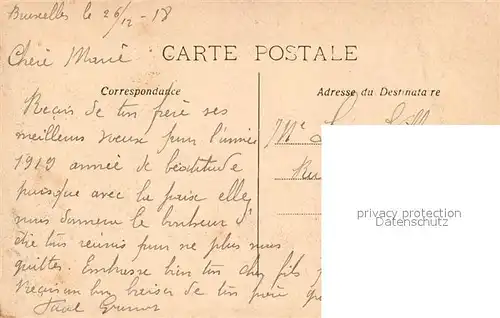 Bruxelles le 26/12 - 18
Chère Marie
CARTE POSTALE
Correspondance
Adresse du Destinataire
Reçois de ton frère ses
meilleurs vœux pour l'année
1919 année de béatitude
puisque avec la paix elle
nous donnera le bonheur d'
être tous réunis pour ne plus nous
quitter. Embrasse bien ton cher fils
Reçois un bon baiser de ton frère
Mme
privacy protection
Datenschutz